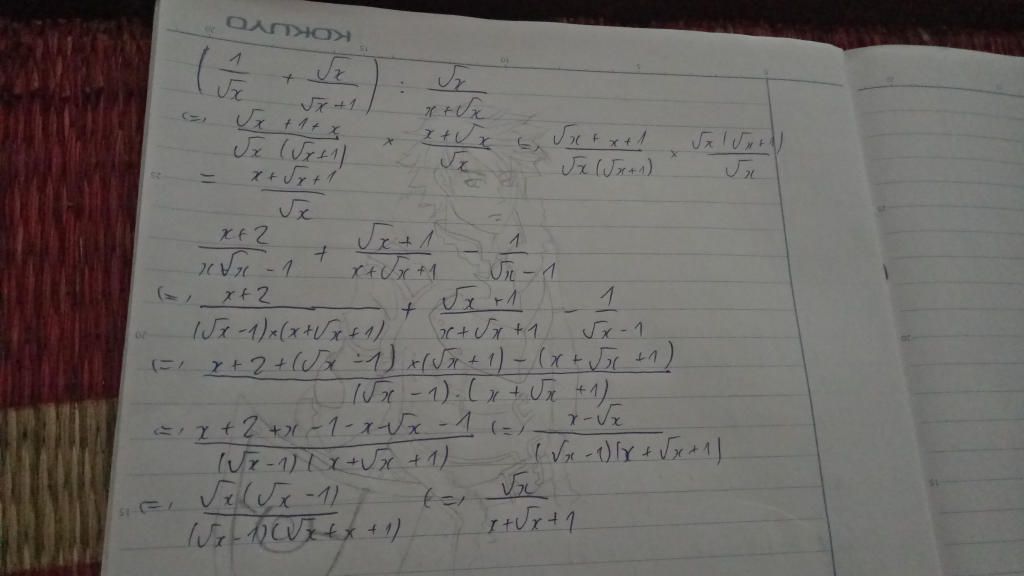 KOKUYO
(1/√x + √x/(√x+1)) : √x/(x+√x)
(=, (√x+1+x)/(√x (√x+1)) × (x+√x)/√x (=, (√x+x+1)/(√x(√x+1)) × √x(√x+1)/√x
= (x+√x+1)/√x
(x+2)/(x√x-1) + (√x+1)/(x+√x+1) - 1/(√x-1)
(=, (x+2)/((√x-1)×(x+√x+1)) + (√x+1)/(x+√x+1) - 1/(√x-1)
(=, (x+2+(√x-1)×(√x+1)-(x+√x+1))/((√x-1).(x+√x+1))
(=, (x+2+x-1-x-√x-1)/((√x-1)(x+√x+1)) (=, (x-√x)/((√x-1)(x+√x+1)
(=, √x(√x-1)/((√x-1)(√x+x+1)) (=, √x/(x+√x+1)